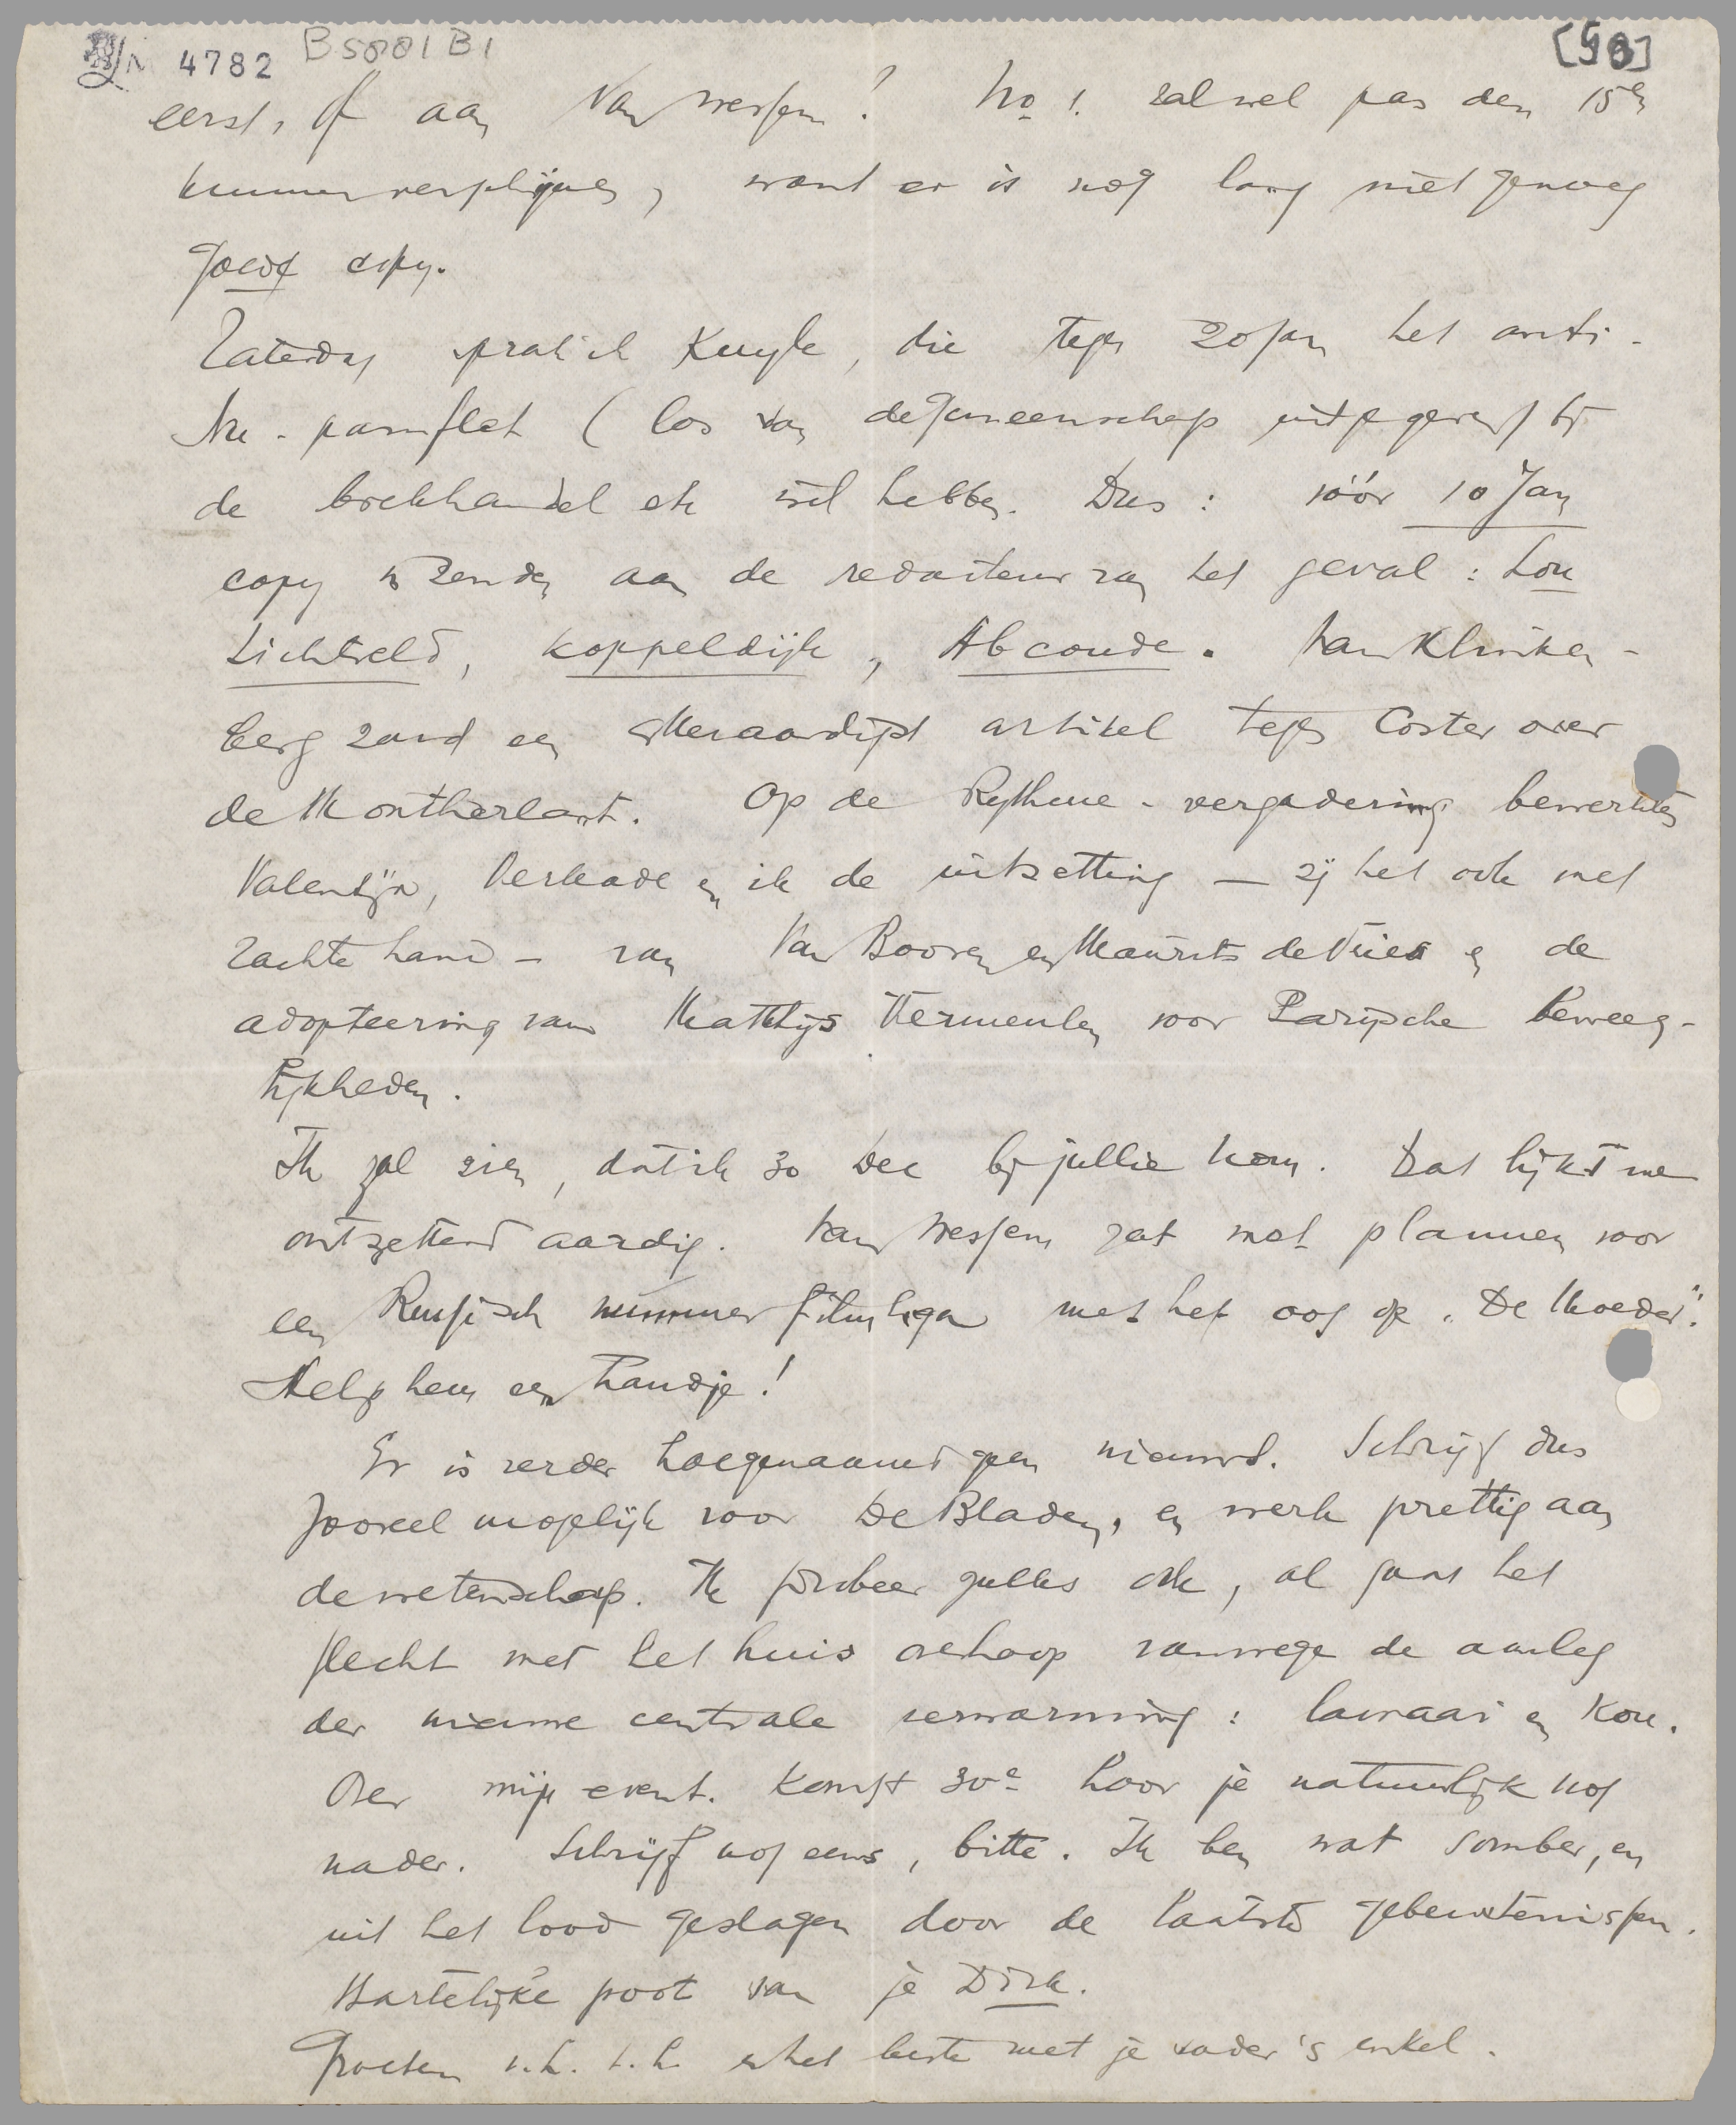 4782 B5001B1 [50]
eerst, of aan Van Wessem? No 1. zal wel pas den 15en
kunnen verschijnen, want er is nog lang niet genoeg
goede copy.
Zaterdag sprak ik Kuyle, die tegen 20 Jan het anti-
Nu-pamflet (los van de Gemeenschap uitgegeven) bij
de boekhandel etc wil hebben. Dus: vóór 10 Jan
copy te zenden aan de redacteur van het geval: Lou
Lichtveld, Koppeldijk, Abcoude. Van Klinken-
berg zond een alleraardigst artikel tegen Coster over
de Montherlant. Op de Rythme-vergadering bewerkten
Valentijn, Verkade en ik de uitzetting — zij het ook met
zachte hand — van Van Booven en Maurits de Vries en de
adopteering van Matthijs Vermeulen voor Parijsche beweeg-
lijkheden.
Ik zal zien, dat ik 30 Dec bij jullie kom. Dat lijkt me
ontzettend aardig. Van Wessem zat met plannen voor
een Russisch nummer Filmliga met het oog op "De Moeder".
Help hem een handje!
Er is verder hoegenaamd geen nieuws. Schrijf dus
zooveel mogelijk voor De Bladen, en werk prettig aan
de wetenschap. Ik probeer zulks ook, al gaat het
slecht met het huis overhoop vanwege de aanleg
der nieuwe centrale verwarming: lawaai en kou.
Over mijn event. komst 30e hoor je natuurlijk nog
nader. Schrijf nog eens, bitte. Ik ben wat somber, en
uit het lood geslagen door de laatste gebeurtenissen.
Hartelijke poot van je Dirk.
Groeten v.h. t.h. en het beste met je vader's enkel.